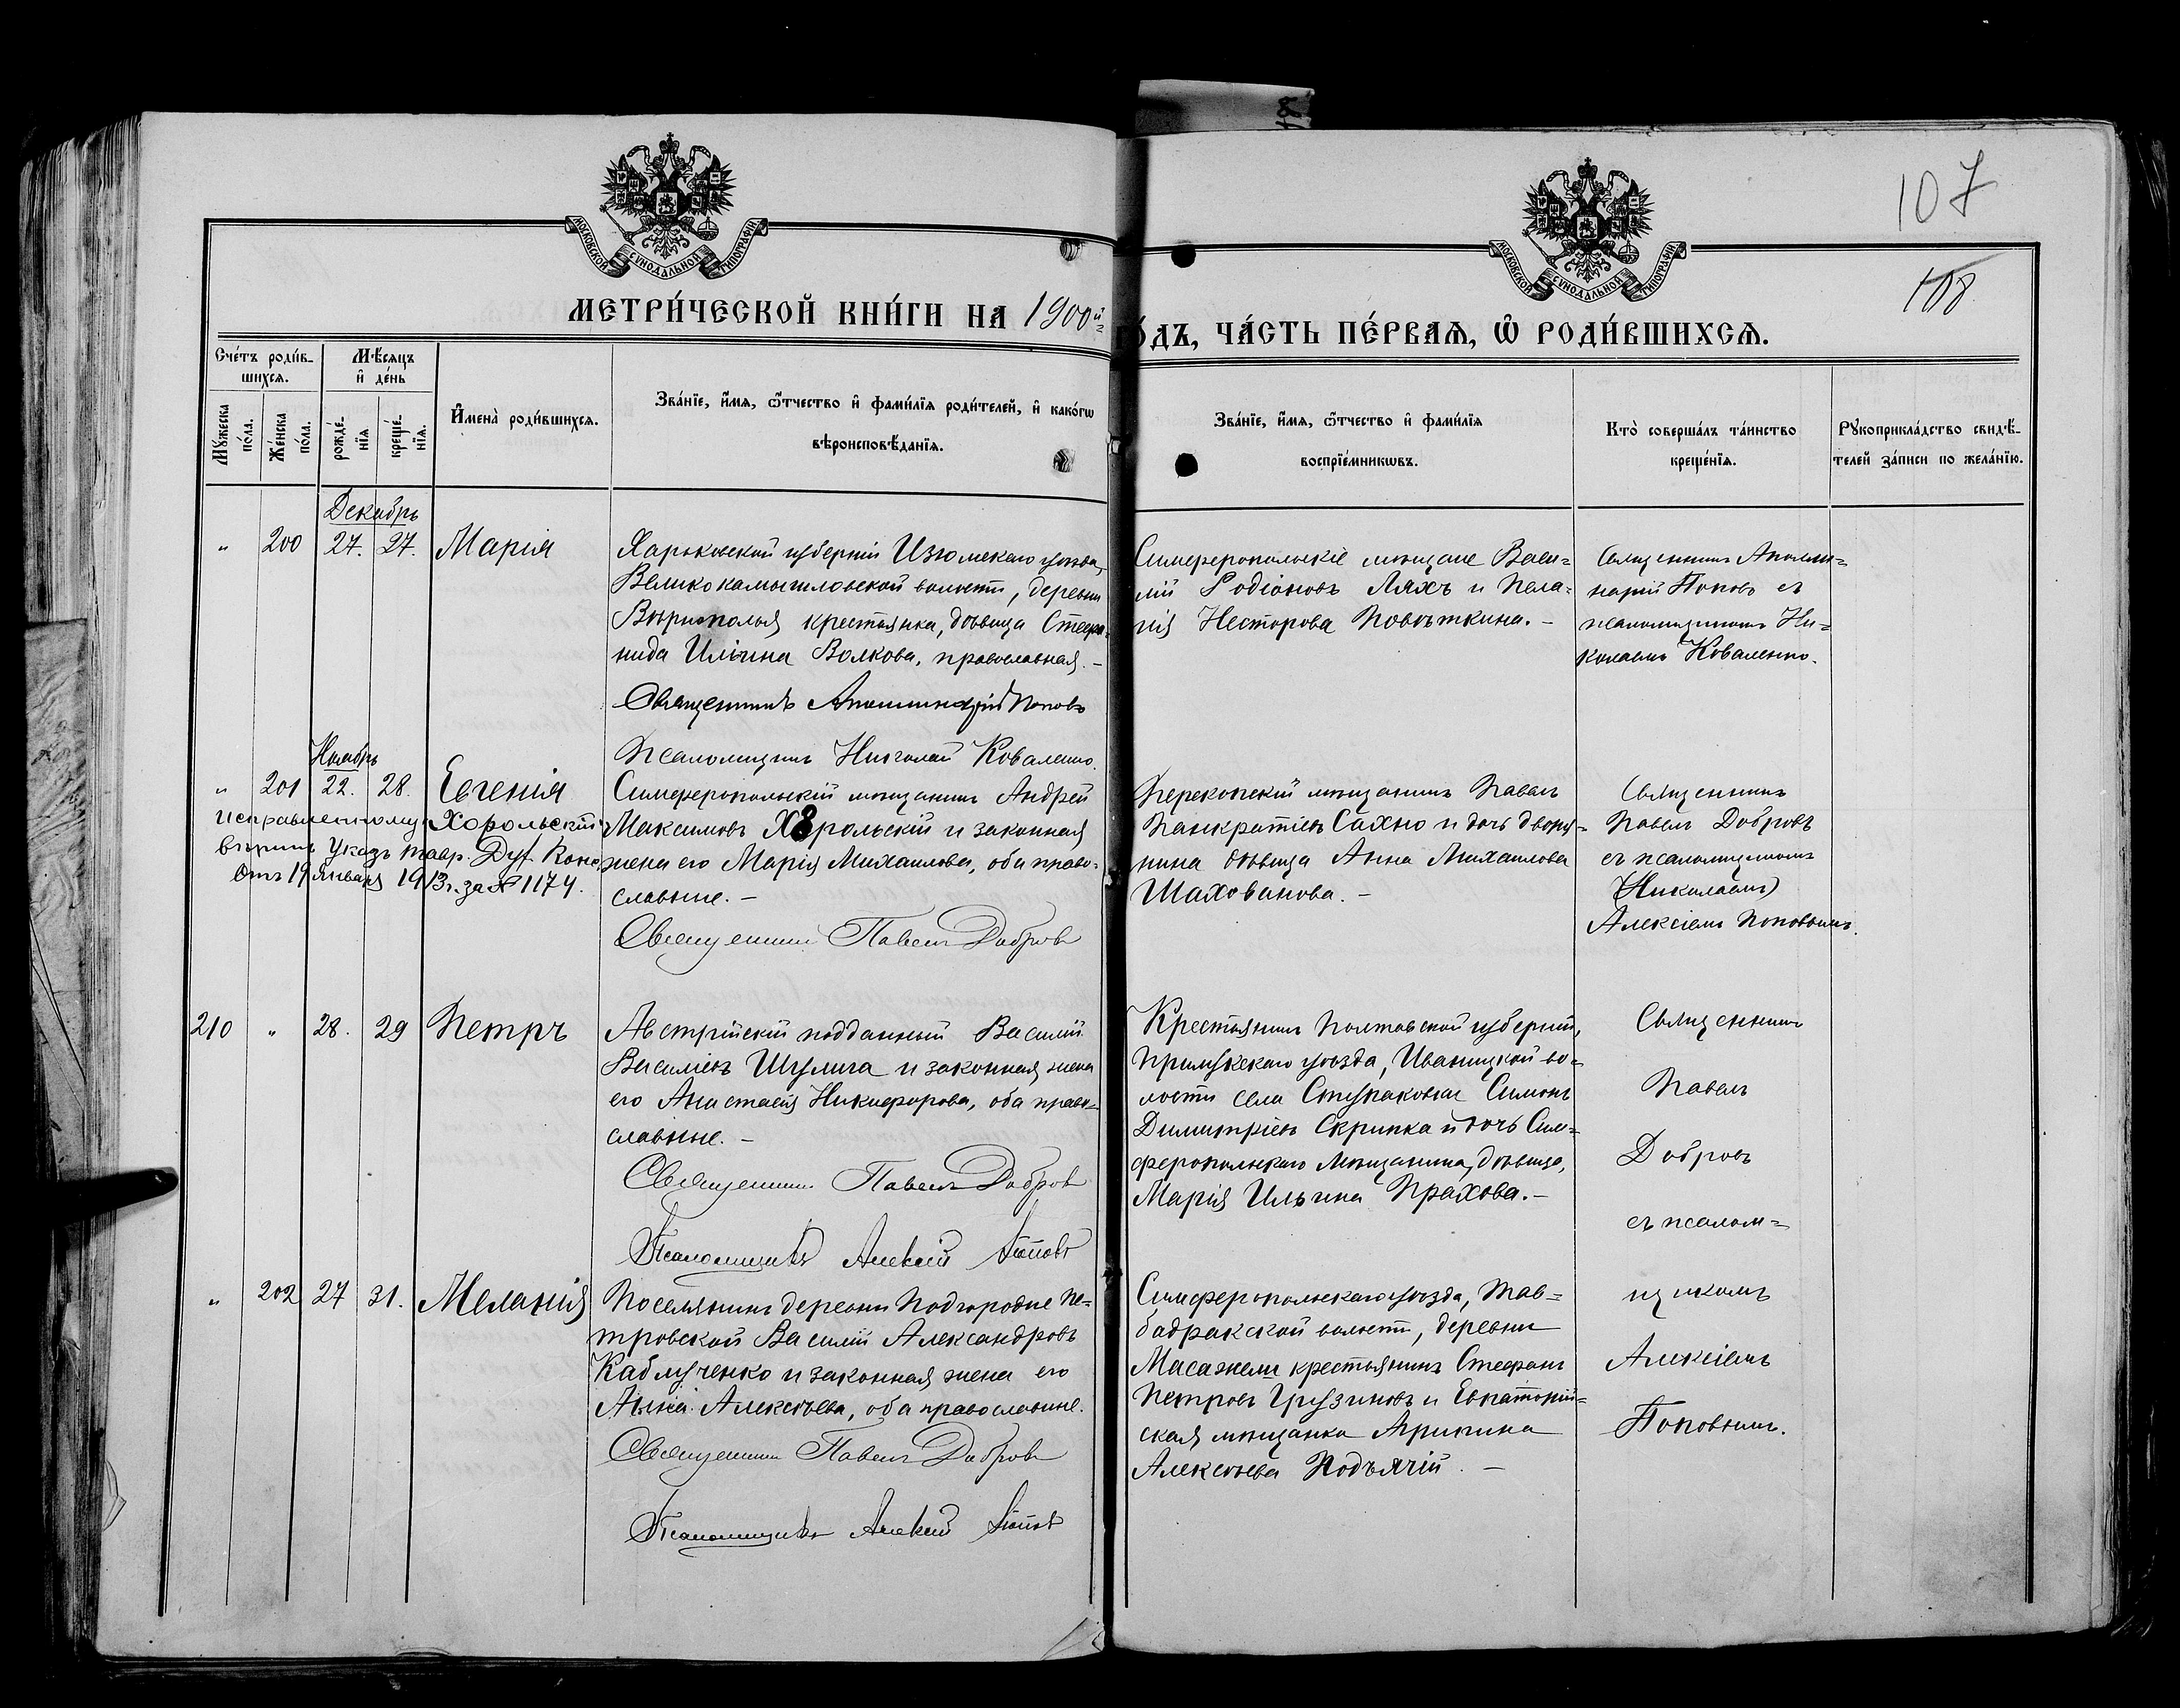 107
108
МОСКОВСКОЙ СѴНОДАЛЬНОЙ ТИПОГРАФІИ
МОСКОВСКОЙ СѴНОДАЛЬНОЙ ТИПОГРАФІИ
МЕТРИ́ЧЕСКОЙ КНИ́ГИ НА 1900й
О́ДЪ, ЧА́СТЬ ПЕ́РВАЯ, Ѡ РОДИ́ВШИХСЯ.
Сче́тъ роди́в-
шихся.
Мѣ́сяцъ
и де́нь
Мꙋ́жеска
по́ла.
Же́нска
по́ла.
рожде́-
нїя
креще́-
нїя.
И҆мена̀ роди́вшихся.
Зва́нїе, и҆́мя, ѻ҆́тчество и҆ фами́лїя роди́телей, и҆ како́гѡ
вѣроисповѣ́данїя.
Зва́нїе, и҆́мя, ѻ҆́тчество и҆ фами́лїя
воспрїе́мникѡвъ.
Кто̀ соверша́лъ та́инство
креще́нїя.
Рꙋкоприкла́дство свидѣ́-
телей за́писи по жела́нїю.
Декабрь
„ 200 27. 27. Марія
Харьковской губерніи Изюмскаго уѣзда,
Великокамышловской волости, деревни
крестьянка, дѣвица Стефа-
нида Ильина Волкова, православная. –
Священникъ Аполлинарій Поповъ
Псаломщикъ Николай Коваленко.
Симферопольскіе мѣщане Васи-
лій Родіоновъ Ляхъ и Пела-
гія Несторова Повѣткина. –
Священникъ Аполли-
нарій Поповъ съ
псаломщикомъ Ни-
колаемъ Коваленко.
Ноябрь
„ 201 22. 28. Евгенія
Исправленному Хорольскій
вѣрить Указъ Тавр. Дух. Конс.
отъ 19 Января 1913 г. за № 1174.
Симферопольскій мѣщанинъ Андрей
Максимовъ Хорольскій и законная
жена его Марія Михаилова, оба право-
славные. –
Священникъ Павелъ Добровъ
Перекопскій мѣщанинъ Павелъ
Панкратіевъ Сахно и дочь дворя-
нина дѣвица Анна Михаилова
Шахованова. –
Священникъ
Павелъ Добровъ
съ псаломщикомъ
(Николаемъ)
Алексіемъ Поповымъ.
210 „ 28. 29 Петръ
Австрійскій подданный Василій
Василіевъ Шулига и законная жена
его Анастасія Никифорова, оба право-
славные. –
Священникъ Павелъ Добровъ
Псаломщикъ Алексій Поповъ
Крестьянинъ Полтавской губерніи,
Прилукскаго уѣзда, Иваницкой во-
лости села Ступаковки Симонъ
Димитріевъ Скрипка и дочь Сим-
феропольскаго мѣщанина, дѣвица,
Марія Ильина Прахова. –
Священникъ
Павелъ
Добровъ
съ псалом-
„ 202 27 31. Меланія
Поселянинъ деревни Подгородне Пе-
тровской Василій Александровъ
Каблученко и законная жена его
Анна Алексѣева, оба православные.
Священникъ Павелъ Добровъ
Псаломщикъ Алексій Поповъ
Симферопольскаго уѣзда, Тав-
бадракской волости, деревни
крестьянинъ Стефанъ
Петровъ Грузиновъ и Евпаторій-
ская мѣщанка Агрипина
Алексѣева Подъячій. –
щикомъ
Алексіемъ
Поповымъ.